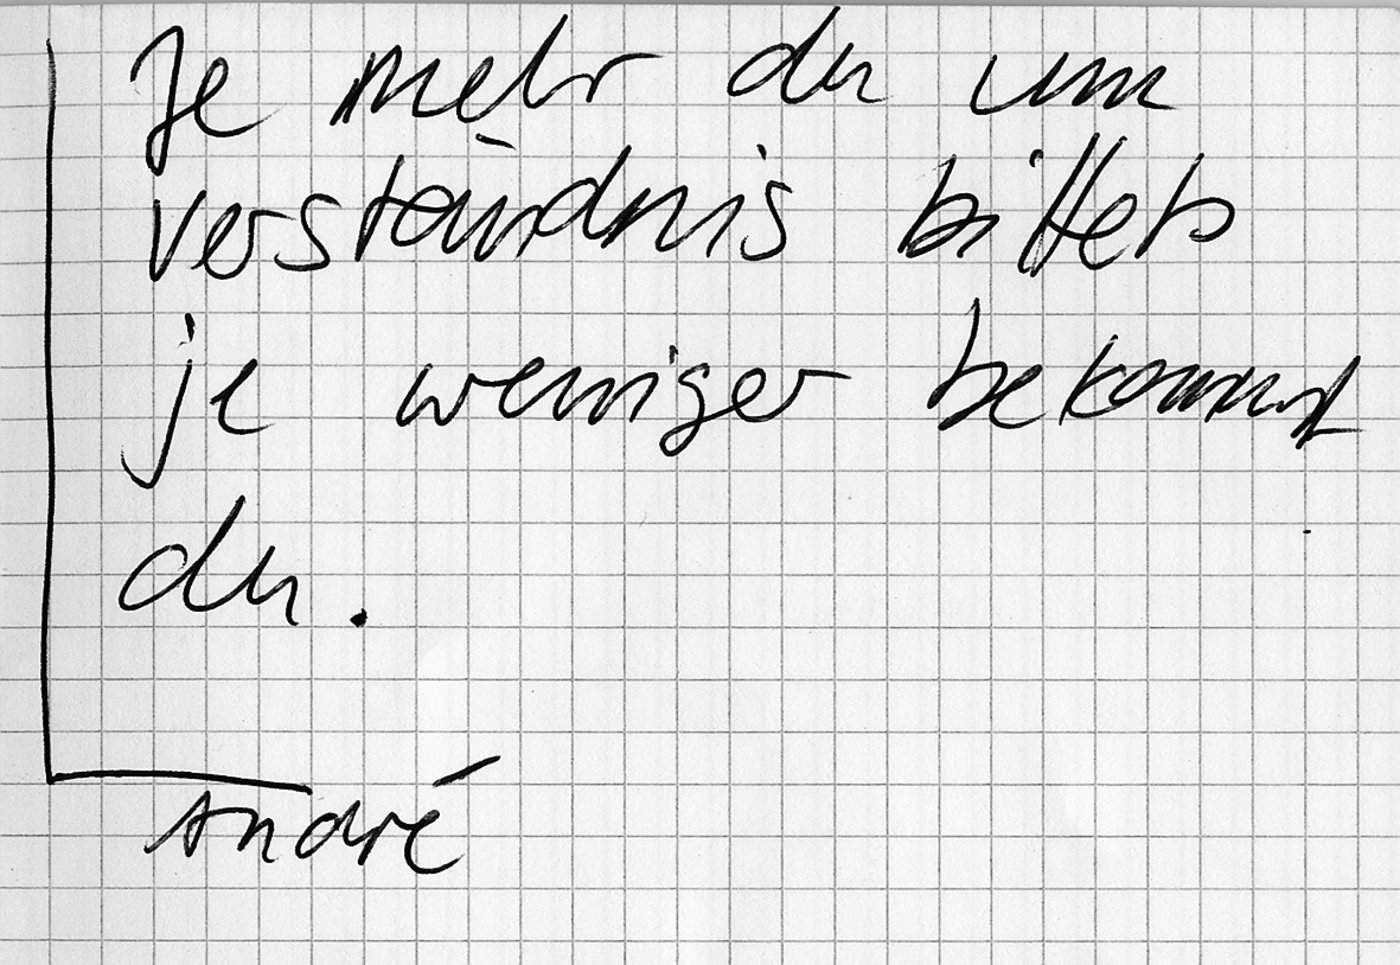 Je mehr du um
verständnis bittets
je weniger bekommst
du.
André